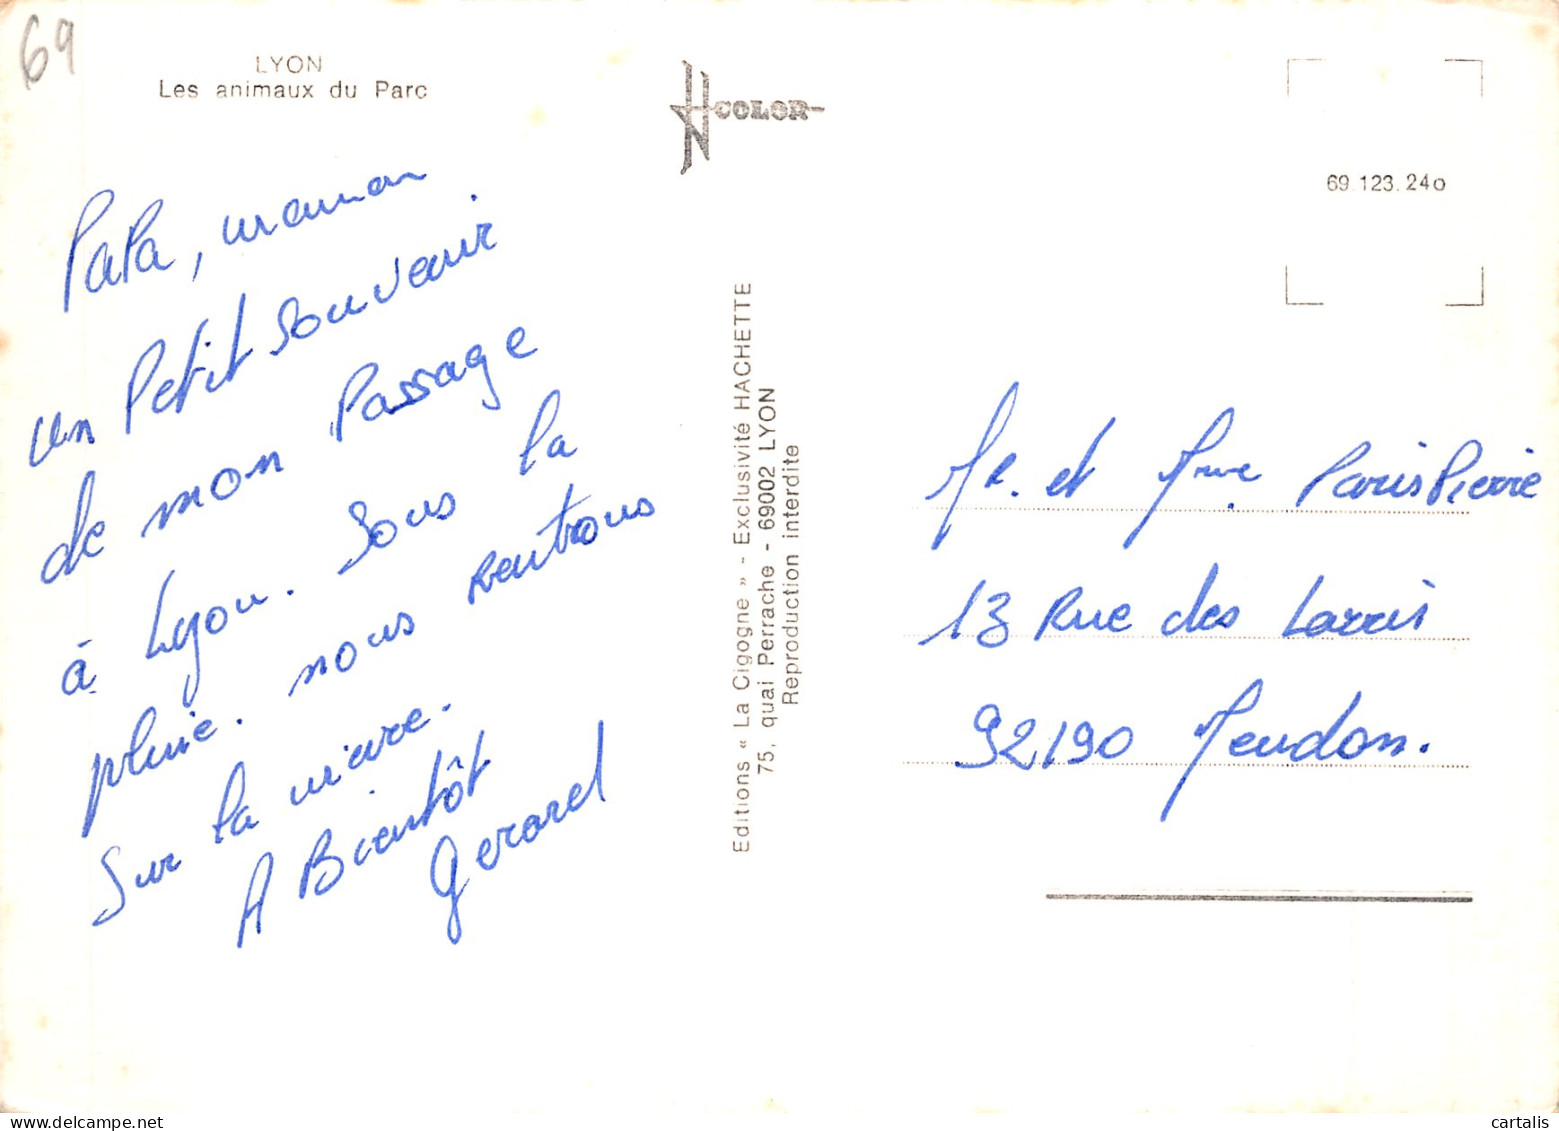 69
LYON
Les animaux du Parc
COLOR
69.123.24o
PaPa, maman
un Petit souvenir
de mon Passage
à Lyon. Sous la
pluie. nous rentrons
Sur la nièvre.
A Bientôt
Gerard
Editions « La Cigogne » - Exclusivité HACHETTE
75, quai Perrache - 69002 LYON
Reproduction interdite
Mr. et Mme Paris Pierre
13 Rue des Larris
92190 Meudon.
www.delcampe.net
cartalis